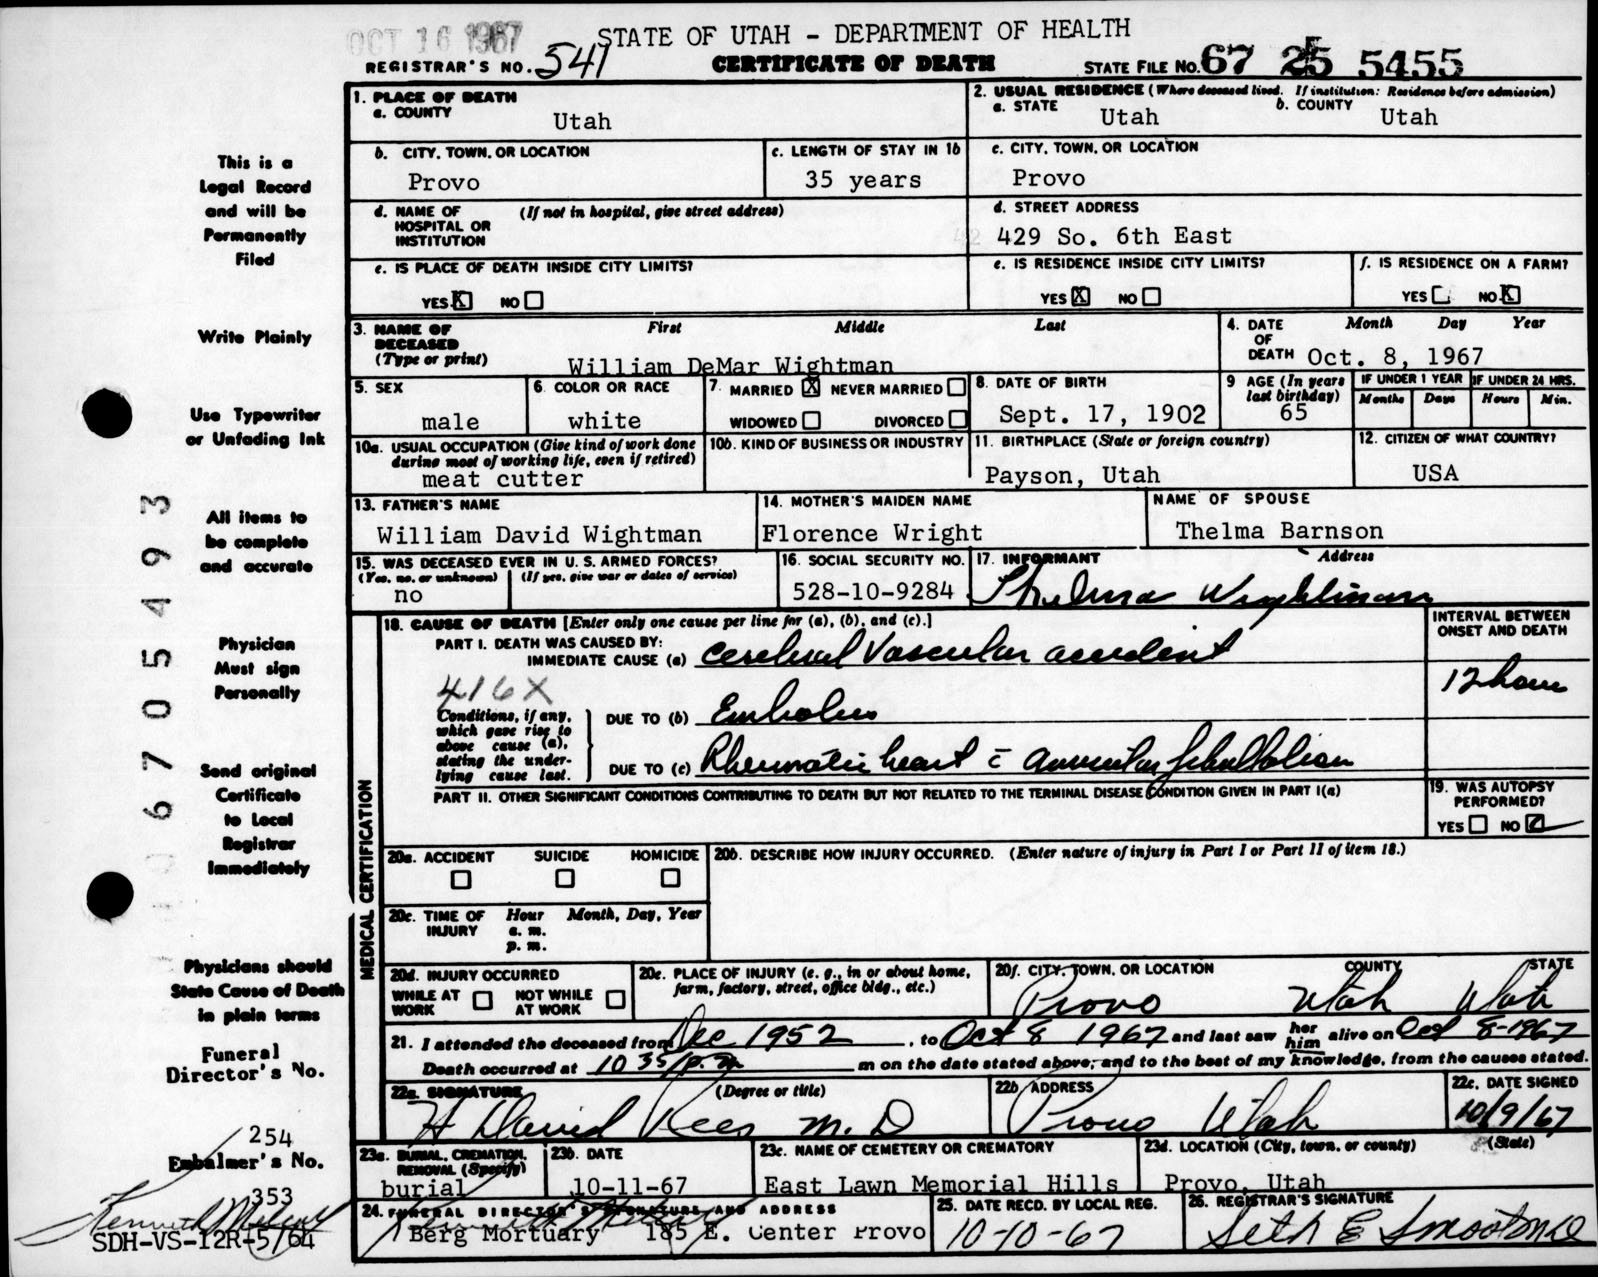 OCT 16 1967
STATE OF UTAH - DEPARTMENT OF HEALTH
REGISTRAR'S NO. 541 CERTIFICATE OF DEATH STATE FILE NO. 67 25 5455
1. PLACE OF DEATH
a. COUNTY Utah
2. USUAL RESIDENCE (Where deceased lived. If institution: Residence before admission)
a. STATE Utah b. COUNTY Utah
b. CITY, TOWN, OR LOCATION Provo
c. LENGTH OF STAY IN 1b 35 years
c. CITY, TOWN, OR LOCATION Provo
d. NAME OF HOSPITAL OR INSTITUTION (If not in hospital, give street address)
d. STREET ADDRESS 429 So. 6th East
e. IS PLACE OF DEATH INSIDE CITY LIMITS?
YES X NO
e. IS RESIDENCE INSIDE CITY LIMITS?
YES X NO
f. IS RESIDENCE ON A FARM?
YES NO X
3. NAME OF DECEASED (Type or print) First Middle Last
William DeMar Wightman
4. DATE OF DEATH Month Day Year
Oct. 8, 1967
5. SEX male
6. COLOR OR RACE white
7. MARRIED X NEVER MARRIED
WIDOWED DIVORCED
8. DATE OF BIRTH Sept. 17, 1902
9 AGE (In years last birthday) 65
IF UNDER 1 YEAR Months Days
IF UNDER 24 HRS. Hours Min.
10a. USUAL OCCUPATION (Give kind of work done during most of working life, even if retired)
meat cutter
10b. KIND OF BUSINESS OR INDUSTRY
11. BIRTHPLACE (State or foreign country)
Payson, Utah
12. CITIZEN OF WHAT COUNTRY?
USA
13. FATHER'S NAME
William David Wightman
14. MOTHER'S MAIDEN NAME
Florence Wright
NAME OF SPOUSE
Thelma Barnson
15. WAS DECEASED EVER IN U. S. ARMED FORCES?
(Yes, no, or unknown) (If yes, give war or dates of service)
no
16. SOCIAL SECURITY NO.
528-10-9284
17. INFORMANT Address
Thelma Wightman
18. CAUSE OF DEATH [Enter only one cause per line for (a), (b), and (c).]
PART I. DEATH WAS CAUSED BY:
IMMEDIATE CAUSE (a) Cerebral Vascular accident
416X
Conditions, if any, which gave rise to above cause (a), stating the underlying cause last.
DUE TO (b) Embolus
DUE TO (c) Rheumatic heart c̄ auricular fibrillation
INTERVAL BETWEEN ONSET AND DEATH
12 hours
PART II. OTHER SIGNIFICANT CONDITIONS CONTRIBUTING TO DEATH BUT NOT RELATED TO THE TERMINAL DISEASE CONDITION GIVEN IN PART I(a)
19. WAS AUTOPSY PERFORMED?
YES NO ✓
MEDICAL CERTIFICATION
20a. ACCIDENT SUICIDE HOMICIDE
20b. DESCRIBE HOW INJURY OCCURRED. (Enter nature of injury in Part I or Part II of item 18.)
20c. TIME OF INJURY Hour Month, Day, Year
a. m.
p. m.
20d. INJURY OCCURRED
WHILE AT WORK NOT WHILE AT WORK
20e. PLACE OF INJURY (e. g., in or about home, farm, factory, street, office bldg., etc.)
20f. CITY, TOWN, OR LOCATION COUNTY STATE
Provo Utah Utah
21. I attended the deceased from Dec 1952, to Oct 8 1967 and last saw her him alive on Oct 8-1967
Death occurred at 10 35/p.m m on the date stated above; and to the best of my knowledge, from the causes stated.
22a. SIGNATURE (Degree or title)
H David Rees M. D
22b ADDRESS
Provo Utah
22c. DATE SIGNED
10/9/67
23a. BURIAL, CREMATION, REMOVAL (Specify)
burial
23b. DATE
10-11-67
23c. NAME OF CEMETERY OR CREMATORY
East Lawn Memorial Hills
23d. LOCATION (City, town, or county) (State)
Provo, Utah
24. FUNERAL DIRECTOR'S SIGNATURE AND ADDRESS
Berg Mortuary 185 E. Center Provo
25. DATE RECD. BY LOCAL REG.
10-10-67
26. REGISTRAR'S SIGNATURE
This is a
Legal Record
and will be
Permanently
Filed
Write Plainly
Use Typewriter
or Unfading Ink
All items to
be complete
and accurate
Physician
Must sign
Personally
Send original
Certificate
to Local
Registrar
Immediately
Physicians should
State Cause of Death
in plain terms
Funeral
Director's No.
254
Embalmer's No.
353
SDH-VS-12R-5/64
6705493